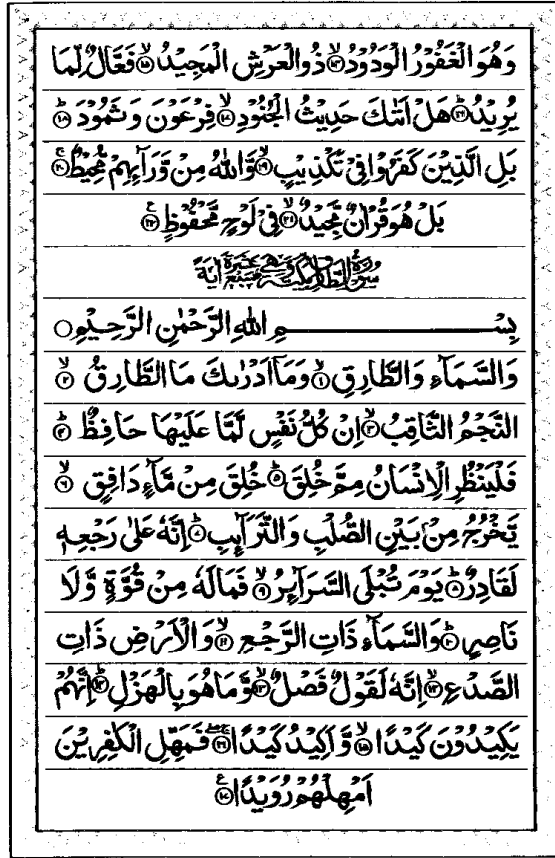 وَهُوَ الْغَفُوْرُ الْوَدُوْدُ ۙ﴿۱۴﴾ ذُو الْعَرْشِ الْمَجِيْدُ ۙ﴿۱۵﴾ فَعَّالٌ لِّمَا
يُرِيْدُ ؕ﴿۱۶﴾ هَلْ اَتٰىكَ حَدِيْثُ الْجُنُوْدِ ۙ﴿۱۷﴾ فِرْعَوْنَ وَ ثَمُوْدَ ؕ﴿۱۸﴾
بَلِ الَّذِيْنَ كَفَرُوْا فِيْ تَكْذِيْبٍ ۙ﴿۱۹﴾ وَّاللّٰهُ مِنْ وَّرَآىِٕهِمْ مُّحِيْطٌ ۚ﴿۲۰﴾
بَلْ هُوَ قُرْاٰنٌ مَّجِيْدٌ ۙ﴿۲۱﴾ فِيْ لَوْحٍ مَّحْفُوْظٍ ﴿۲۲﴾
سُوْرَةُ الطَّارِقِ مَكِّيَّةٌ وَّهِيَ سَبْعَ عَشَرَةَ اٰيَةً
بِسْمِ اللّٰهِ الرَّحْمٰنِ الرَّحِيْمِ
وَالسَّمَآءِ وَالطَّارِقِ ۙ﴿۱﴾ وَمَاۤ اَدْرٰىكَ مَا الطَّارِقُ ۙ﴿۲﴾
النَّجْمُ الثَّاقِبُ ۙ﴿۳﴾ اِنْ كُلُّ نَفْسٍ لَّمَّا عَلَيْهَا حَافِظٌ ؕ﴿۴﴾
فَلْيَنْظُرِ الْاِنْسَانُ مِمَّ خُلِقَ ؕ﴿۵﴾ خُلِقَ مِنْ مَّآءٍ دَافِقٍ ۙ﴿۶﴾
يَّخْرُجُ مِنْۢ بَيْنِ الصُّلْبِ وَالتَّرَآىِٕبِ ؕ﴿۷﴾ اِنَّهٗ عَلٰى رَجْعِهٖ
لَقَادِرٌ ؕ﴿۸﴾ يَوْمَ تُبْلَى السَّرَآىِٕرُ ۙ﴿۹﴾ فَمَا لَهٗ مِنْ قُوَّةٍ وَّلَا
نَاصِرٍ ؕ﴿۱۰﴾ وَالسَّمَآءِ ذَاتِ الرَّجْعِ ۙ﴿۱۱﴾ وَالْاَرْضِ ذَاتِ
الصَّدْعِ ۙ﴿۱۲﴾ اِنَّهٗ لَقَوْلٌ فَصْلٌ ۙ﴿۱۳﴾ وَّمَا هُوَ بِالْهَزْلِ ؕ﴿۱۴﴾ اِنَّهُمْ
يَكِيْدُوْنَ كَيْدًا ۙ﴿۱۵﴾ وَّاَكِيْدُ كَيْدًا ۚ﴿۱۶﴾ فَمَهِّلِ الْكٰفِرِيْنَ
اَمْهِلْهُمْ رُوَيْدًا ﴿۱۷﴾